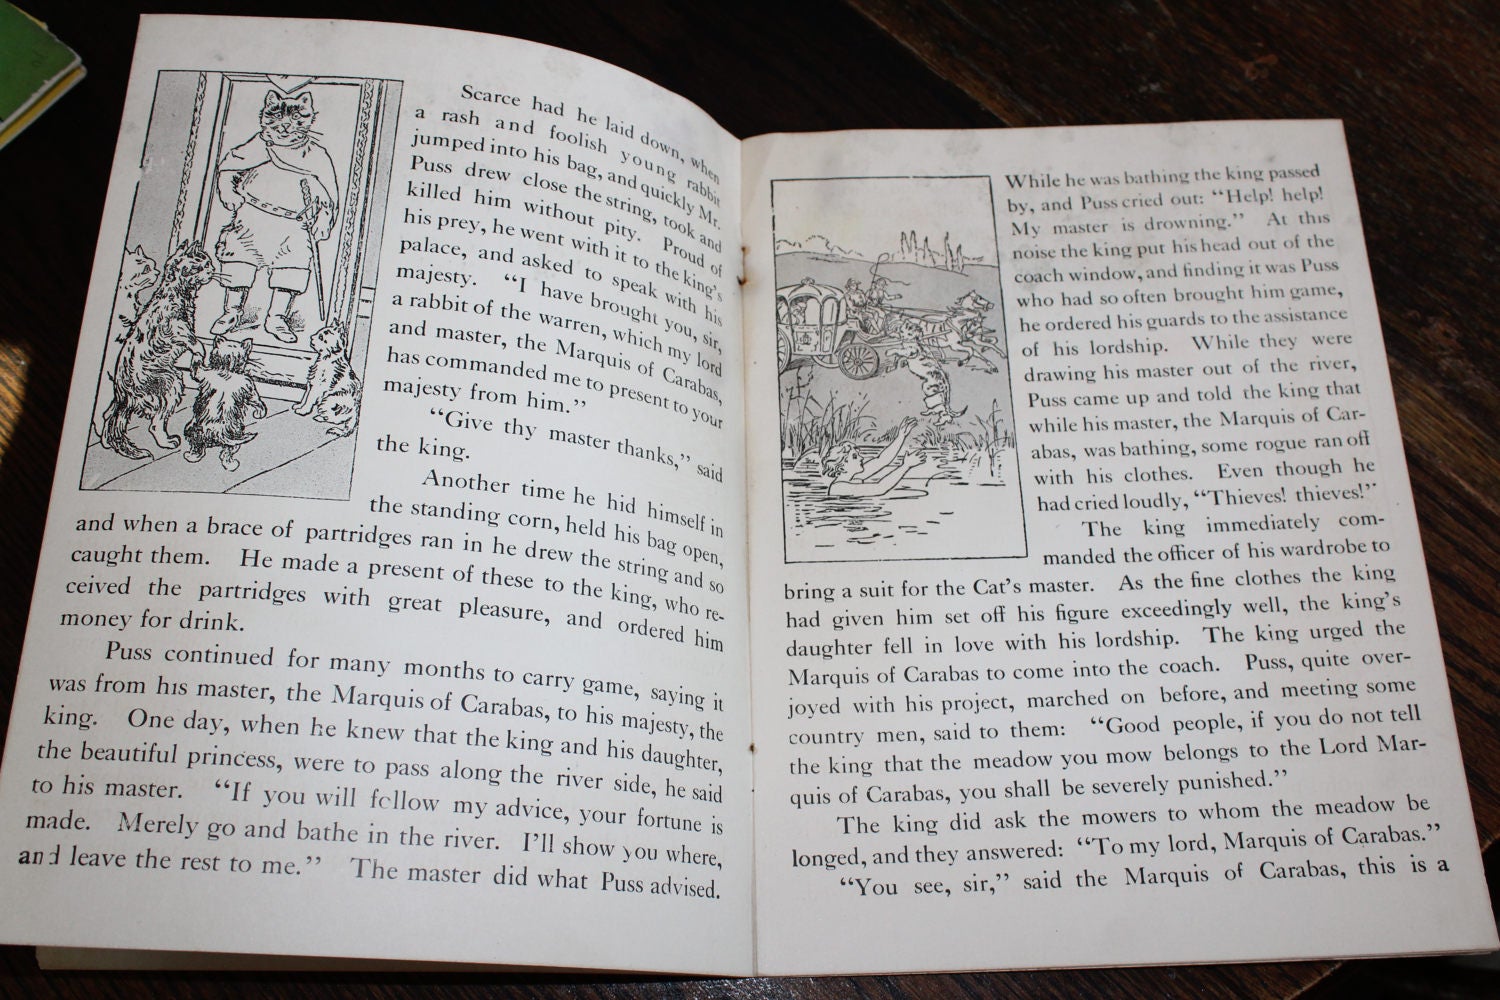 Scarce had he laid down, when
a rash and foolish young rabbit
jumped into his bag, and quickly Mr.
Puss drew close the string, took and
killed him without pity. Proud of
his prey, he went with it to the king's
palace, and asked to speak with his
majesty. "I have brought you, sir,
a rabbit of the warren, which my lord
and master, the Marquis of Carabas,
has commanded me to present to your
majesty from him."
"Give thy master thanks," said
the king.
Another time he hid himself in
the standing corn, held his bag open,
and when a brace of partridges ran in he drew the string and so
caught them. He made a present of these to the king, who re-
ceived the partridges with great pleasure, and ordered him
money for drink.
Puss continued for many months to carry game, saying it
was from his master, the Marquis of Carabas, to his majesty, the
king. One day, when he knew that the king and his daughter,
the beautiful princess, were to pass along the river side, he said
to his master. "If you will follow my advice, your fortune is
made. Merely go and bathe in the river. I'll show you where,
and leave the rest to me." The master did what Puss advised.
While he was bathing the king passed
by, and Puss cried out: "Help! help!
My master is drowning." At this
noise the king put his head out of the
coach window, and finding it was Puss
who had so often brought him game,
he ordered his guards to the assistance
of his lordship. While they were
drawing his master out of the river,
Puss came up and told the king that
while his master, the Marquis of Car-
abas, was bathing, some rogue ran off
with his clothes. Even though he
had cried loudly, "Thieves! thieves!"
The king immediately com-
manded the officer of his wardrobe to
bring a suit for the Cat's master. As the fine clothes the king
had given him set off his figure exceedingly well, the king's
daughter fell in love with his lordship. The king urged the
Marquis of Carabas to come into the coach. Puss, quite over-
joyed with his project, marched on before, and meeting some
country men, said to them: "Good people, if you do not tell
the king that the meadow you mow belongs to the Lord Mar-
quis of Carabas, you shall be severely punished."
The king did ask the mowers to whom the meadow be
longed, and they answered: "To my lord, Marquis of Carabas."
"You see, sir," said the Marquis of Carabas, this is a